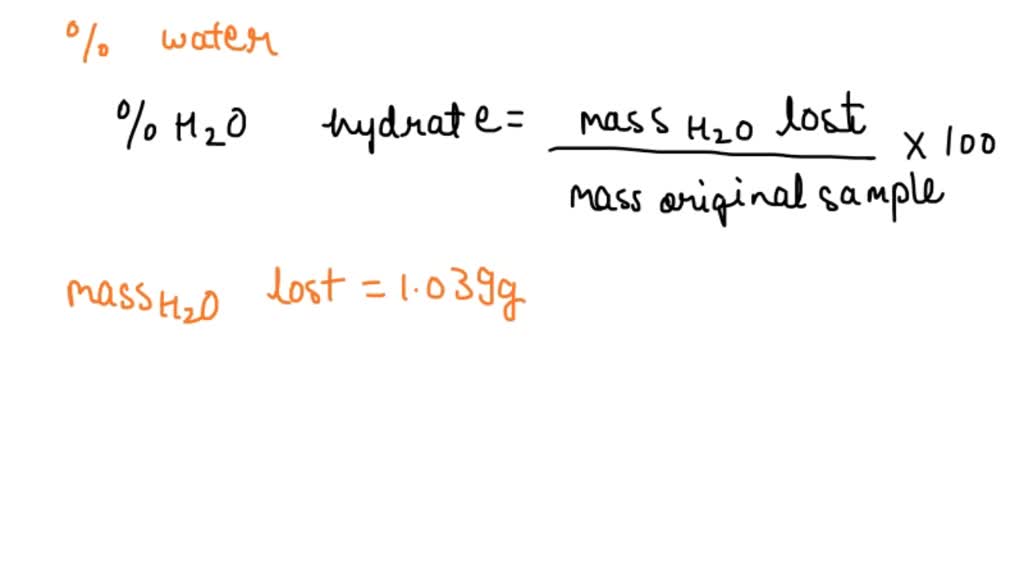 % water
% H₂O hydrate = mass H₂O lost / mass original sample × 100
mass H₂O lost = 1.039g